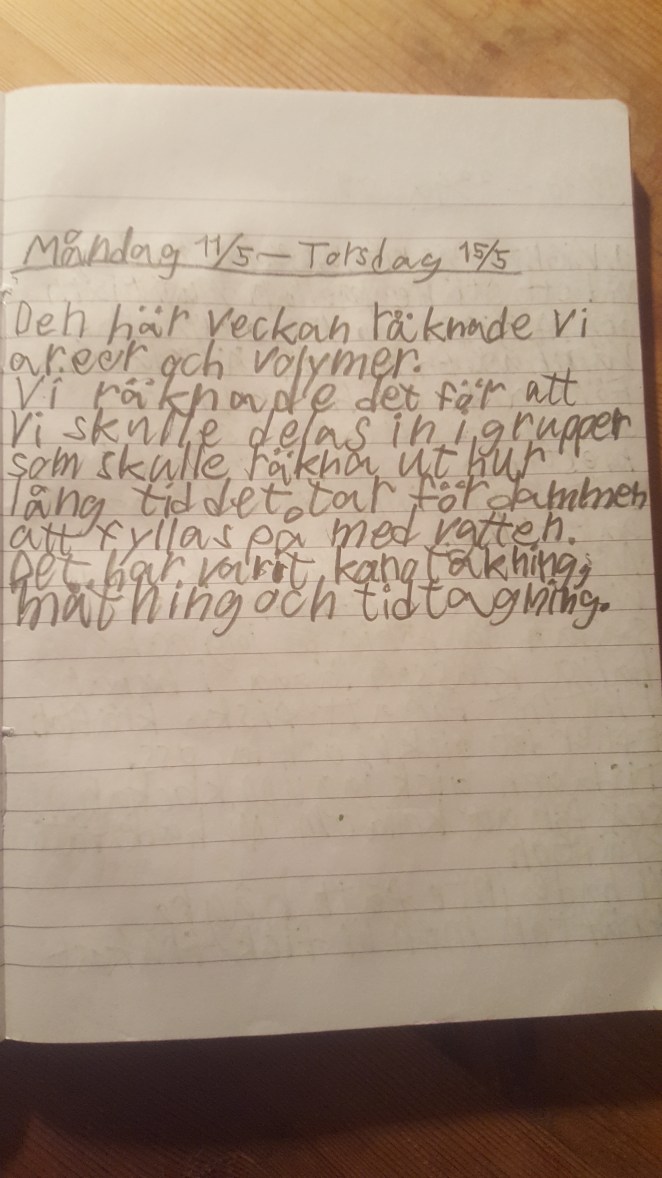 Måndag 11/5 – Torsdag 15/5
Den här veckan räknade vi
areor och volymer.
Vi räknade det för att
vi skulle delas in i grupper
som skulle räkna ut hur
lång tid det tar för dammen
att fyllas på med vatten.
Det har varit,
mätning och tidtagning.